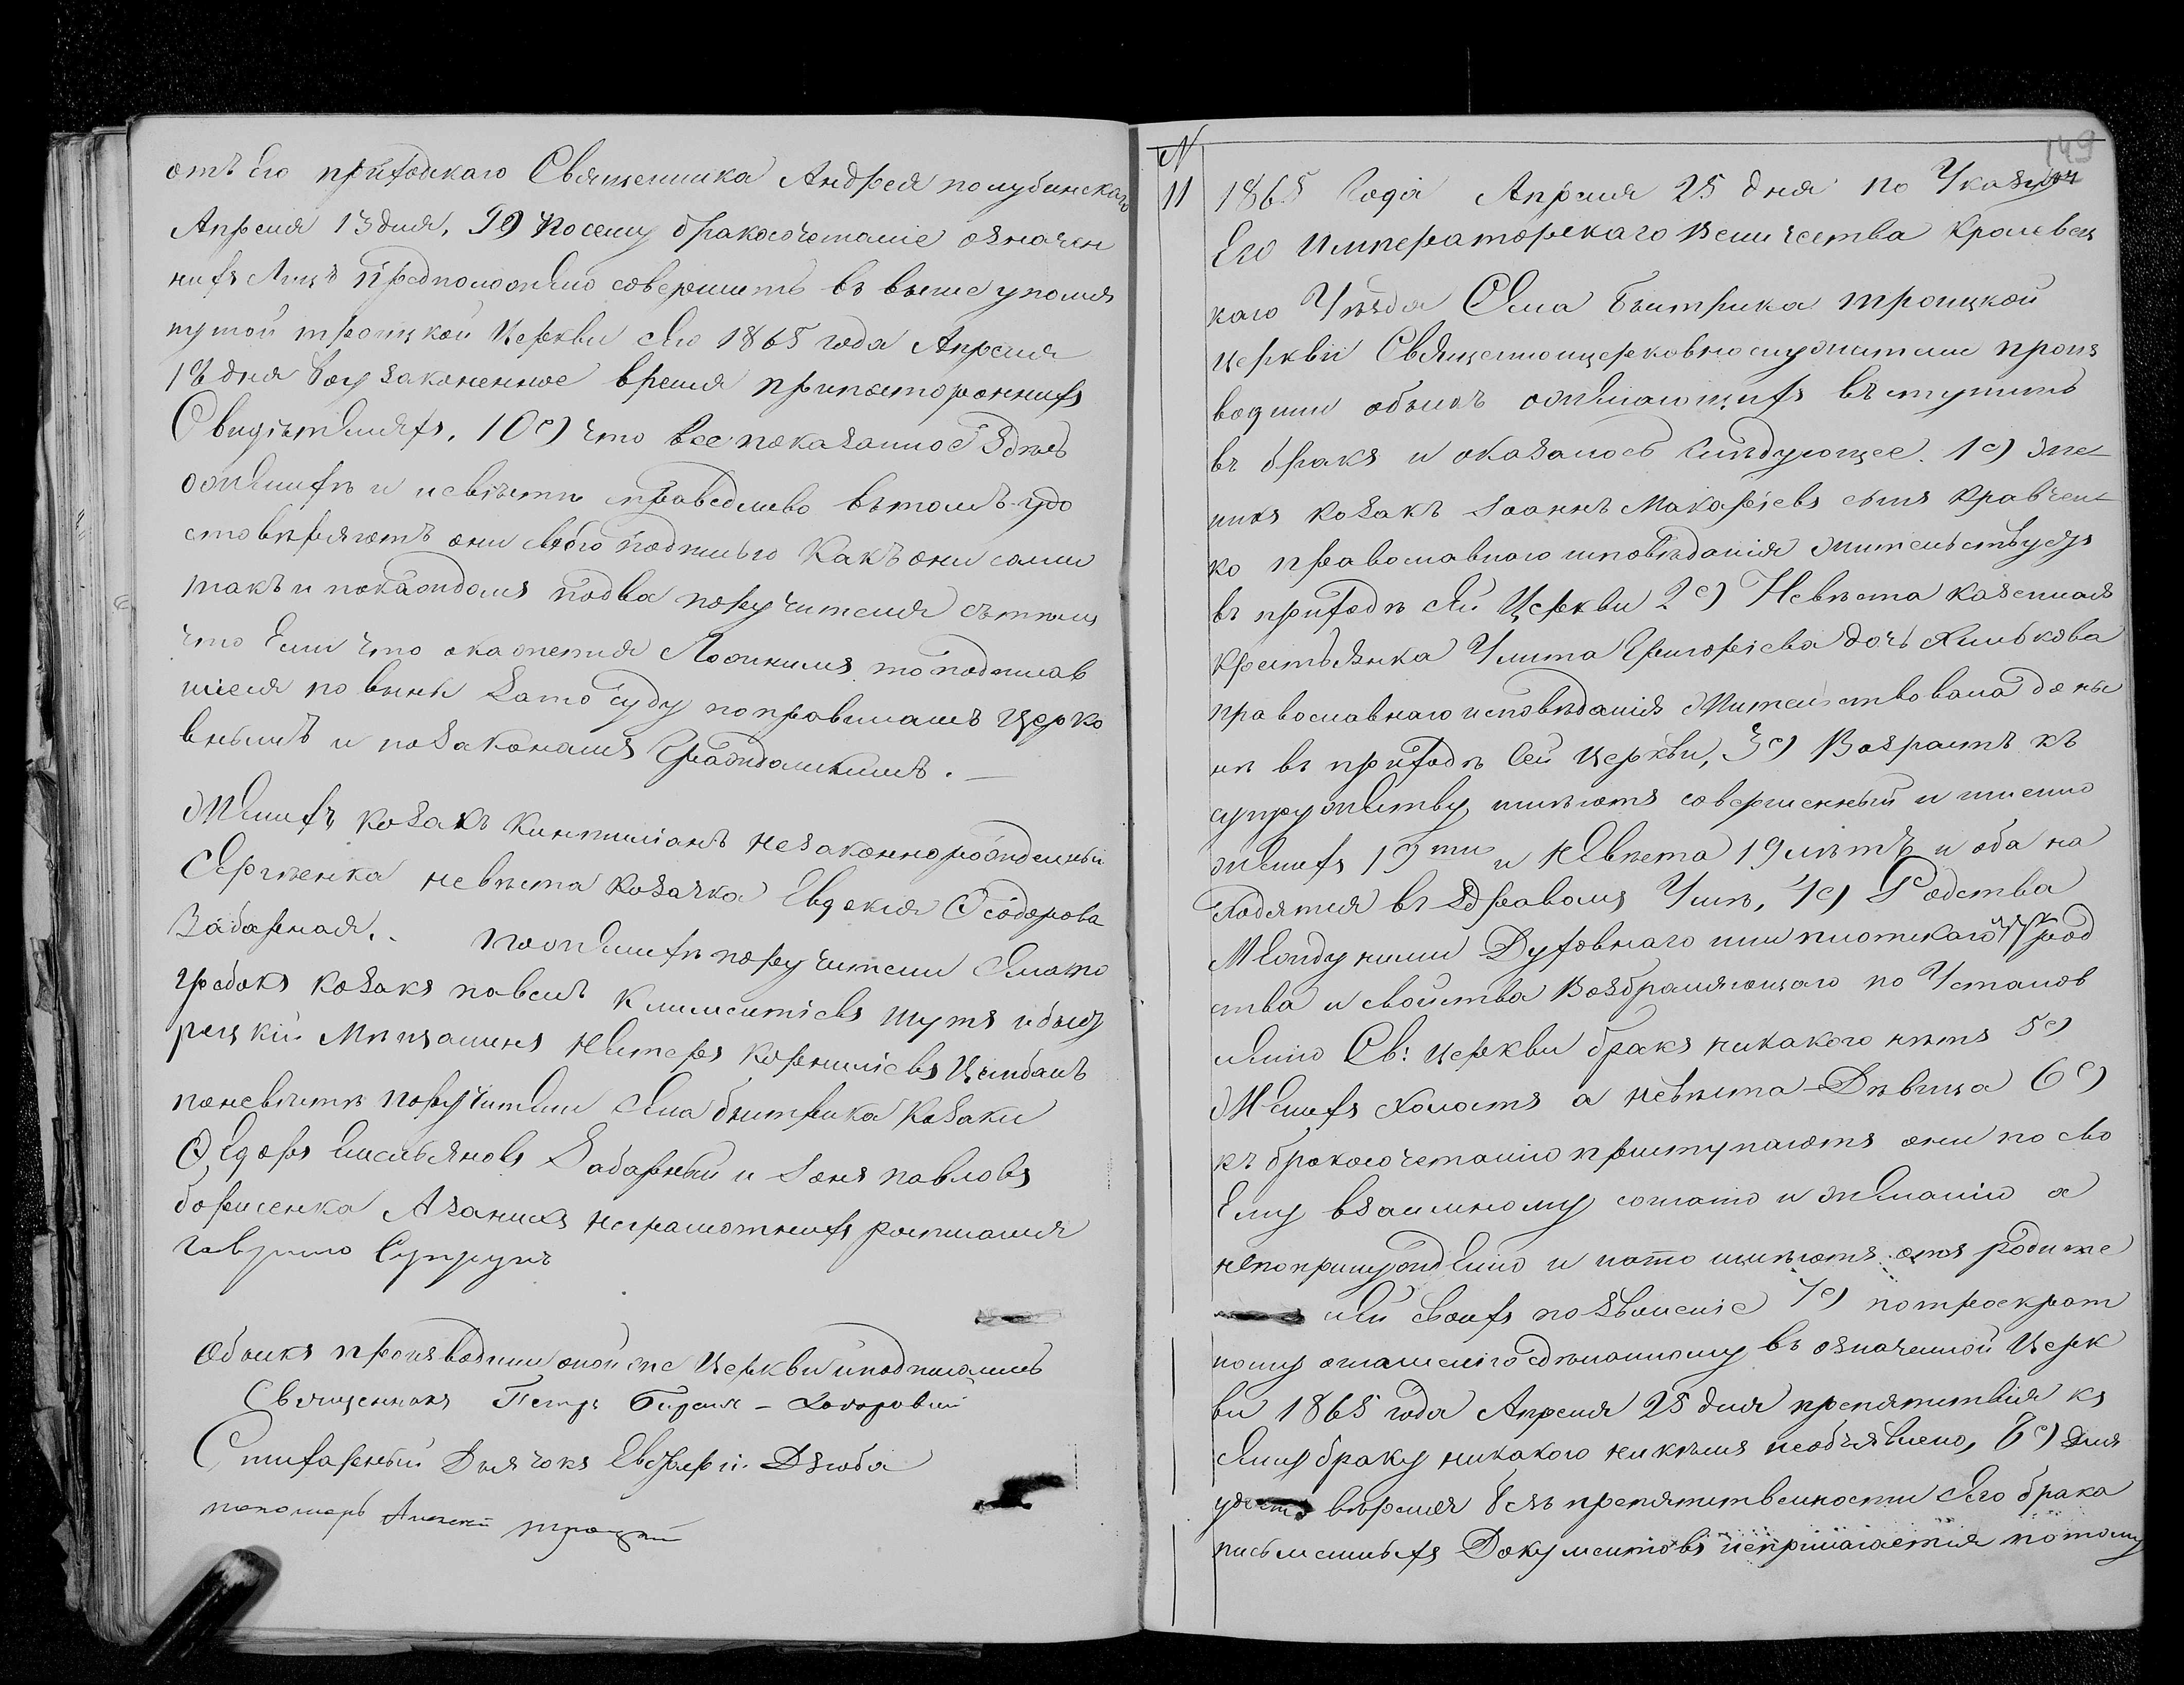 отъ Его приходскаго Священника Андрея полубинскаго
Апреля 13 дня, 9е) Посему бракосочетаніе означен
ныхъ лицъ предположено совершить въ выше упомя
нутой троицкой Церкви сего 1865 года Апреля
18 дня въ узаконенное время припостороннихъ
Свидѣтеляхъ, 10е) что все показанное здѣсь
оженихѣ и невѣстѣ справедливо вътомъ удо
стовѣряютъ они своею подписью какъ они сами
такъ и покаждомъ подва поручителя сътѣмъ
что Если что окажется Ложнымъ то подписав
шіеся повины зато суду поправиламъ церко
внымъ и позаконамъ Гражданскимъ. —
Женихъ козакъ Кинтиліанъ незаконнорожденный
Сергѣенка невѣста козачка Евдокія Ѳеодорова
Забарная. Поженихѣ поручители села
козакъ павелъ Климентіевъ Шутъ и
рецкій Мѣщанинъ Нестеръ Корниліевъ Цимбалъ
поневѣстѣ поручители села быстрика козаки
Ѳедоръ Емельяновъ Забарный и Іонъ павловъ
борисенка Азанихъ неграмотныхъ росписался
гаврило Супрунъ
Обыскъ производили оной же Церкви иподписались
Священникъ Петръ
Стихарный Дьячокъ Евфѵмъ Дзюба
пономарь Алексей троцкій
149
N
11 1865 Года Апреля 25 дня по Указу
Его Императорскаго Величества Кролевец
каго Уѣзда Села Быстрика троицкой
церкви Священноцерковнослужители произ
водили обыскъ ожелающихъ въступить
въ бракъ и оказалось слѣдующее. 1е) Же
нихъ козакъ Іоаннъ Макаріевъ сынъ Кравчен
ко православнаго исповѣданія жительствуетъ
въ приходѣ сей Церкви 2е) Невѣста казенная
крестьянка Улита Григоріева дочь Хилькова
православнаго исповѣданія Жительствовала доны
нѣ въ приходѣ сей церкви, 3е) Возрастъ къ
супружеству имѣютъ совершенный и имено
женихъ 19ти и невѣста 19 лѣтъ и оба на
ходятся въ здравомъ Умѣ, 4е) Родства
Между ними Духовнаго или плотскаго род
ства и свойства Возбраняющаго по Установ
ленію Св: церкви бракъ никакого нѣтъ 5е)
Женихъ холостъ а невѣста Дѣвица 6е)
къ бракосочетанію приступаютъ они по сво
Ему взаимному согласію и желанію а
непопринужденію и нато имѣютъ отъ родите
лей своихъ позволеніе 7е) потроекрат
ному оглашенію сдѣланному въ означенной Церк
ви 1865 года Апреля 25 дня препятствія къ
сему браку никакого никѣмъ необъявлено, 8е) Для
удостовѣренія безъ препятственности сего брака
письменныхъ Документовъ неприлагается потому